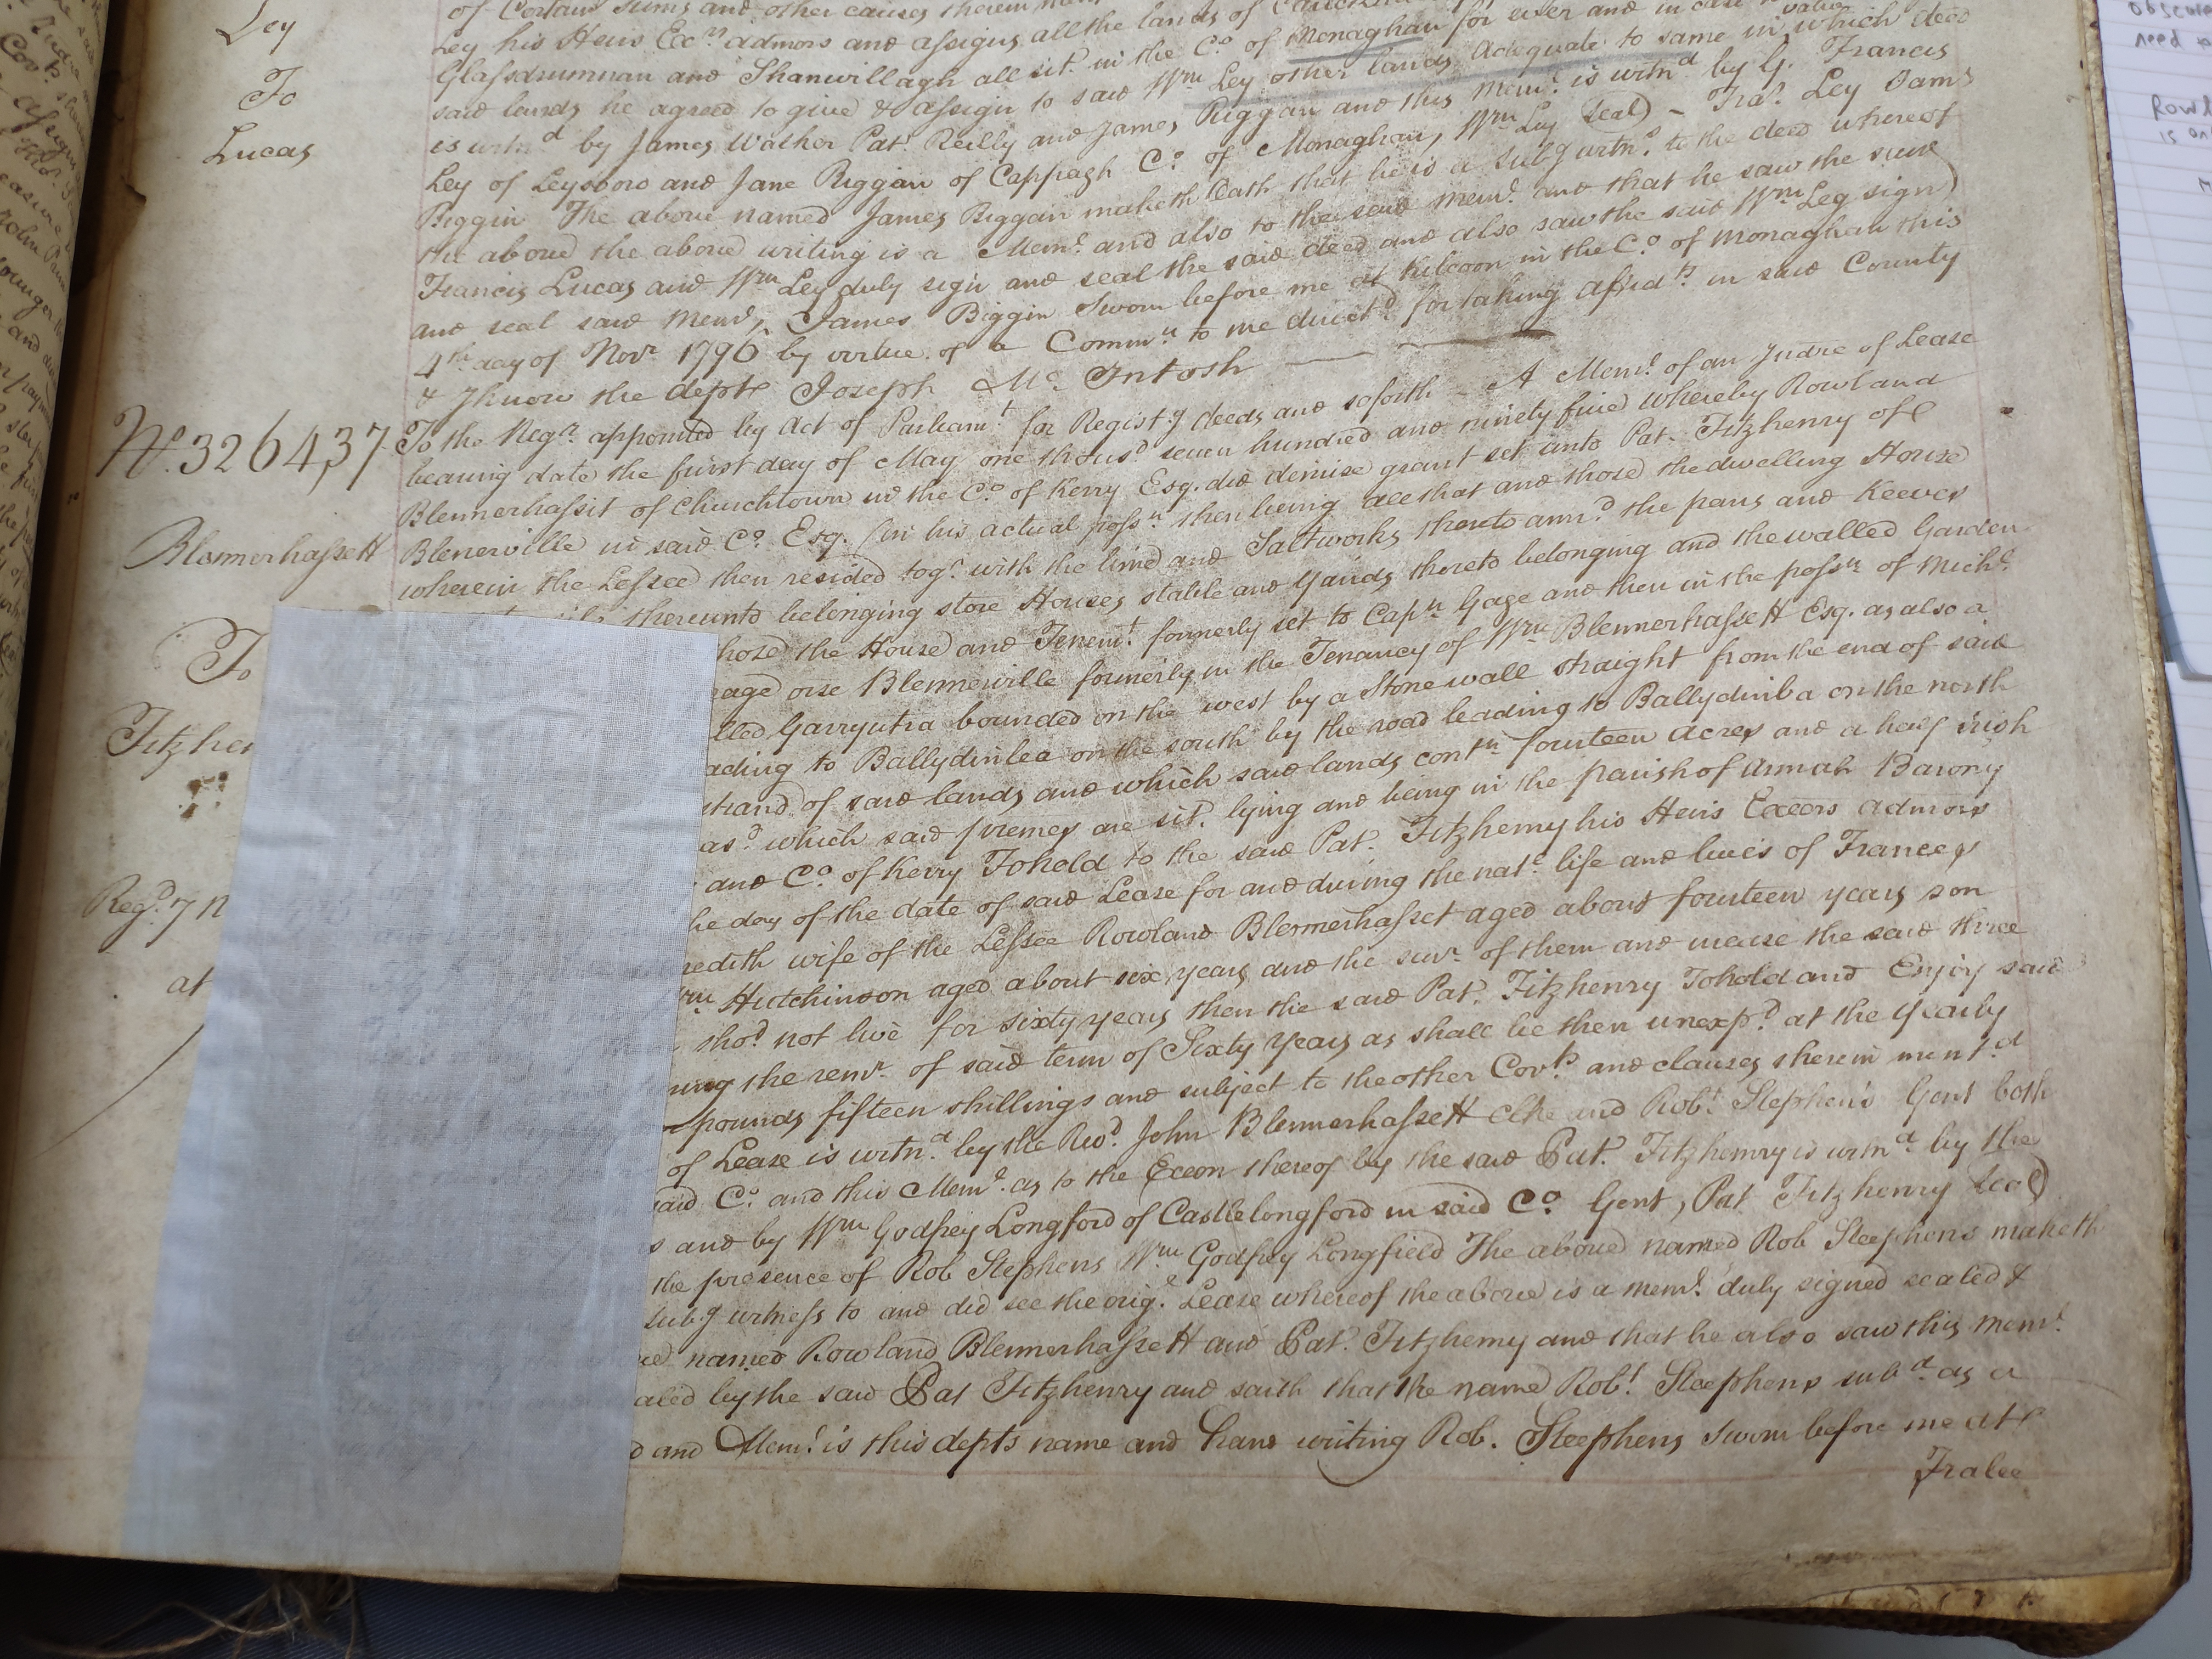 of Certain Sums and other causes therein
Ley his Heirs Exrs admors and assigns all the lands of
Glassdrumnan and Shanvillagh all sit. in the Co. of Monaghan for ever and in case
said lands he agreed to give & assign to said Wm Ley other lands adequate to same in which deed
is witnd by James Walker Pat. Reilly and James Biggan and this Meml. is witnd by G. Francis
Ley of Leysboro and Jane Biggan of Cappagh Co. of Monaghan, Wm Ley (Seal) - Fra. Ley Jams
Biggin The above named James Biggan maketh Oath that he is a subg witns. to the deed whereof
the above the above writing is a Meml. and also to the said Meml. and that he saw the said
Francis Lucas and Wm Ley duly sign and seal the said deed and also saw the said Wm Ley sign
and seal said Meml, James Biggin Sworn before me at Kilcoon in the Co. of Monaghan this
4th day of Novr 1796 by virtue of a Commn to me directd for taking affidts in said County
& I know the dept Joseph Mc. Intosh
Ley
To
Lucas
No. 326437
Blennerhassett
To
Fitzhen
Regd. 7 N
at
To the Regr. appointed by Act of Parliamt for Registg deeds and soforth - A Meml. of an Indre of Lease
bearing date the first day of May one thousd seven hundred and ninety five whereby Rowland
Blennerhassit of Churchtown in the Co. of Kerry Esq. did demise grant set unto Pat. Fitzhenry of
Blenerville in said Co. Esq. (in his actual possn. then being all that and those the dwelling House
wherein the Lessee then resided togr. with the lime and Saltworks thereto annd. the pans and Keeves
thereunto belonging store Houses stable and yards thereto belonging and the walled Garden
hose the House and Tenemt. formerly set to Capn Gage and then in the possn of Michl.
eage orse Blennerville formerly in the Tenancy of Wm Blennerhassett Esq. as also a
lled Garryutra bounded on the west by a Stone wall straight from the end of said
ading to Ballydinlea on the south by the road leading to Ballydinba on the north
strand of said lands and which said lands contn fourteen acres and a half Irish
as. which said premes are sit. lying and being in the parish of Annah Barony
and Co. of Kerry To hold to the said Pat. Fitzhenry his Heirs Exeors admors
he day of the date of said Lease for and during the natl. life and lives of Frances
redith wife of the Lessee Rowland Blennerhasset aged about fourteen years son
rm Hutchinson aged about six years and the survr. of them and incase the said three
shod. not live for sixty years then the said Pat. Fitzhenry To hold and Enjoy said
uring the remr. of said term of Sixty years as shall be then unexpd. at the yearly
pounds fifteen shillings and subject to the other Covts. and clauses therein mentd
of Lease is witnd. by the Revd. John Blennerhassett Clke and Robt. Stephens Gent both
said Co. and this Meml. as to the Exeon thereof by the said Pat. Fitzhenry is witnd by the
s and by Wm Godfrey Longford of Castlelongford in said Co. Gent, Pat Fitzhenry (Seal)
the presence of Rob Stephens Wm Godfrey Longfield The above named Rob Steephens maketh
subg witness to and did see the origl. Lease whereof the above is a meml. duly signed sealed &
ve named Rowland Blennerhassett and Pat. Fitzhenry and that he also saw this meml.
ealed by the said Pat Fitzhenry and saith that the name Robt. Steephens subd. as a
d and Meml. is this depts name and hand writing Rob. Steephens Sworn before me at
Tralee